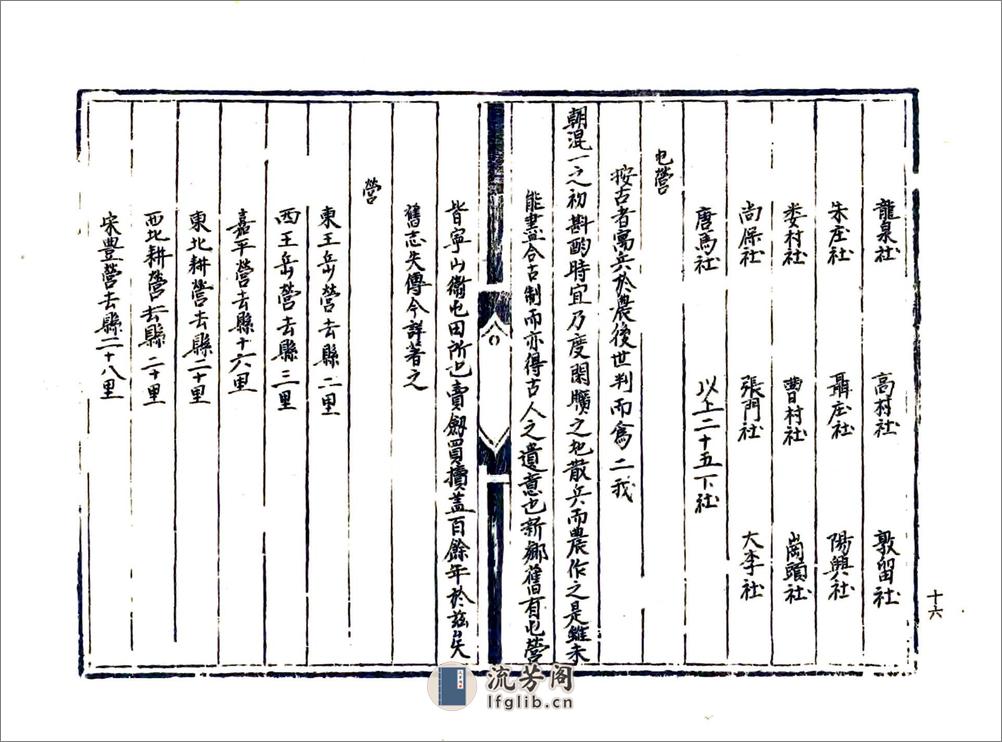 龍泉社　高村社　敦留社
朱庄社　聶庄社　陽興社
娄村社　曹村社　崗頭社
尚保社　張門社　大李社
唐馬社　以上二十五下社
屯營
按古者寓兵於農後世判而為二我
朝混一之初斟酌時宜乃度閑曠之地散兵而農作之是雖未
能盡合古制而亦得古人之遺意也新鄉舊有屯營
皆寧山衛屯田所也賣劔買犢盖百餘年於兹矣
舊志失傳今詳著之
營
東王岳營去縣二里
西王岳營去縣三里
嘉平營去縣十六里
東北耕營去縣二十里
西北耕營去縣二十里
宋豊營去縣二十八里
十六
流芳阁
lfglib.cn